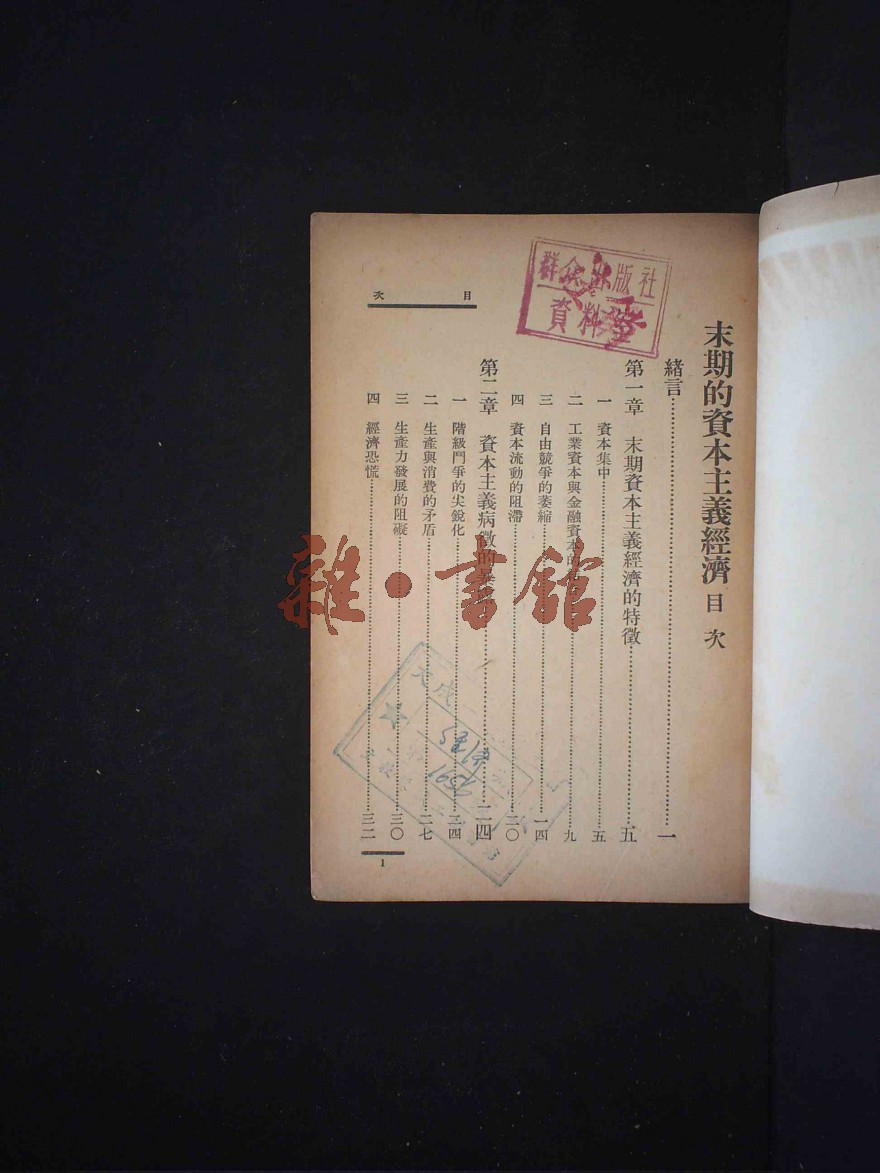 末期的資本主義經濟 目次
緒言……一
第一章 末期資本主義經濟的特徵……五
一 資本集中……五
二 工業資本與金融資本的……九
三 自由競爭的萎縮……一四
四 資本流動的阻滯……二〇
第二章 資本主義病徵的暴……二四
一 階級鬥爭的尖銳化……二四
二 生產與消費的矛盾……二七
三 生產力發展的阻礙……三〇
四 經濟恐慌……三二
目次
1
群众出版社
資料室
雜·書館
大成